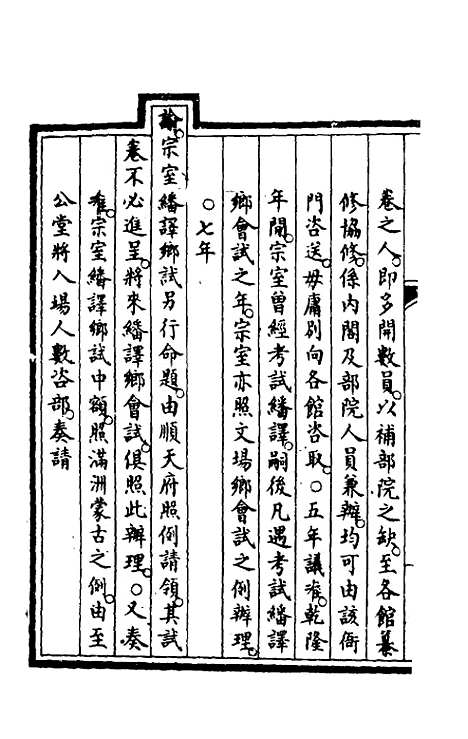 卷之人。即多開數員。以補部院之缺。至各館纂
修協修。係内閣及部院人員兼辦。均可由該衙
門咨送。毋庸别向各館咨取。○五年議准。乾隆
年間。宗室曾經考試繙譯。嗣後凡遇考試繙譯
鄉會試之年。宗室亦照文場鄉會試之例辦理。
○七年
諭。宗室繙譯鄉試另行命題。由順天府照例請領。其試
卷不必進呈。將來繙譯鄉會試。俱照此辦理。○又奏
准。宗室繙譯鄉試中額。照滿洲蒙古之例。由至
公堂將入場人數咨部。奏請